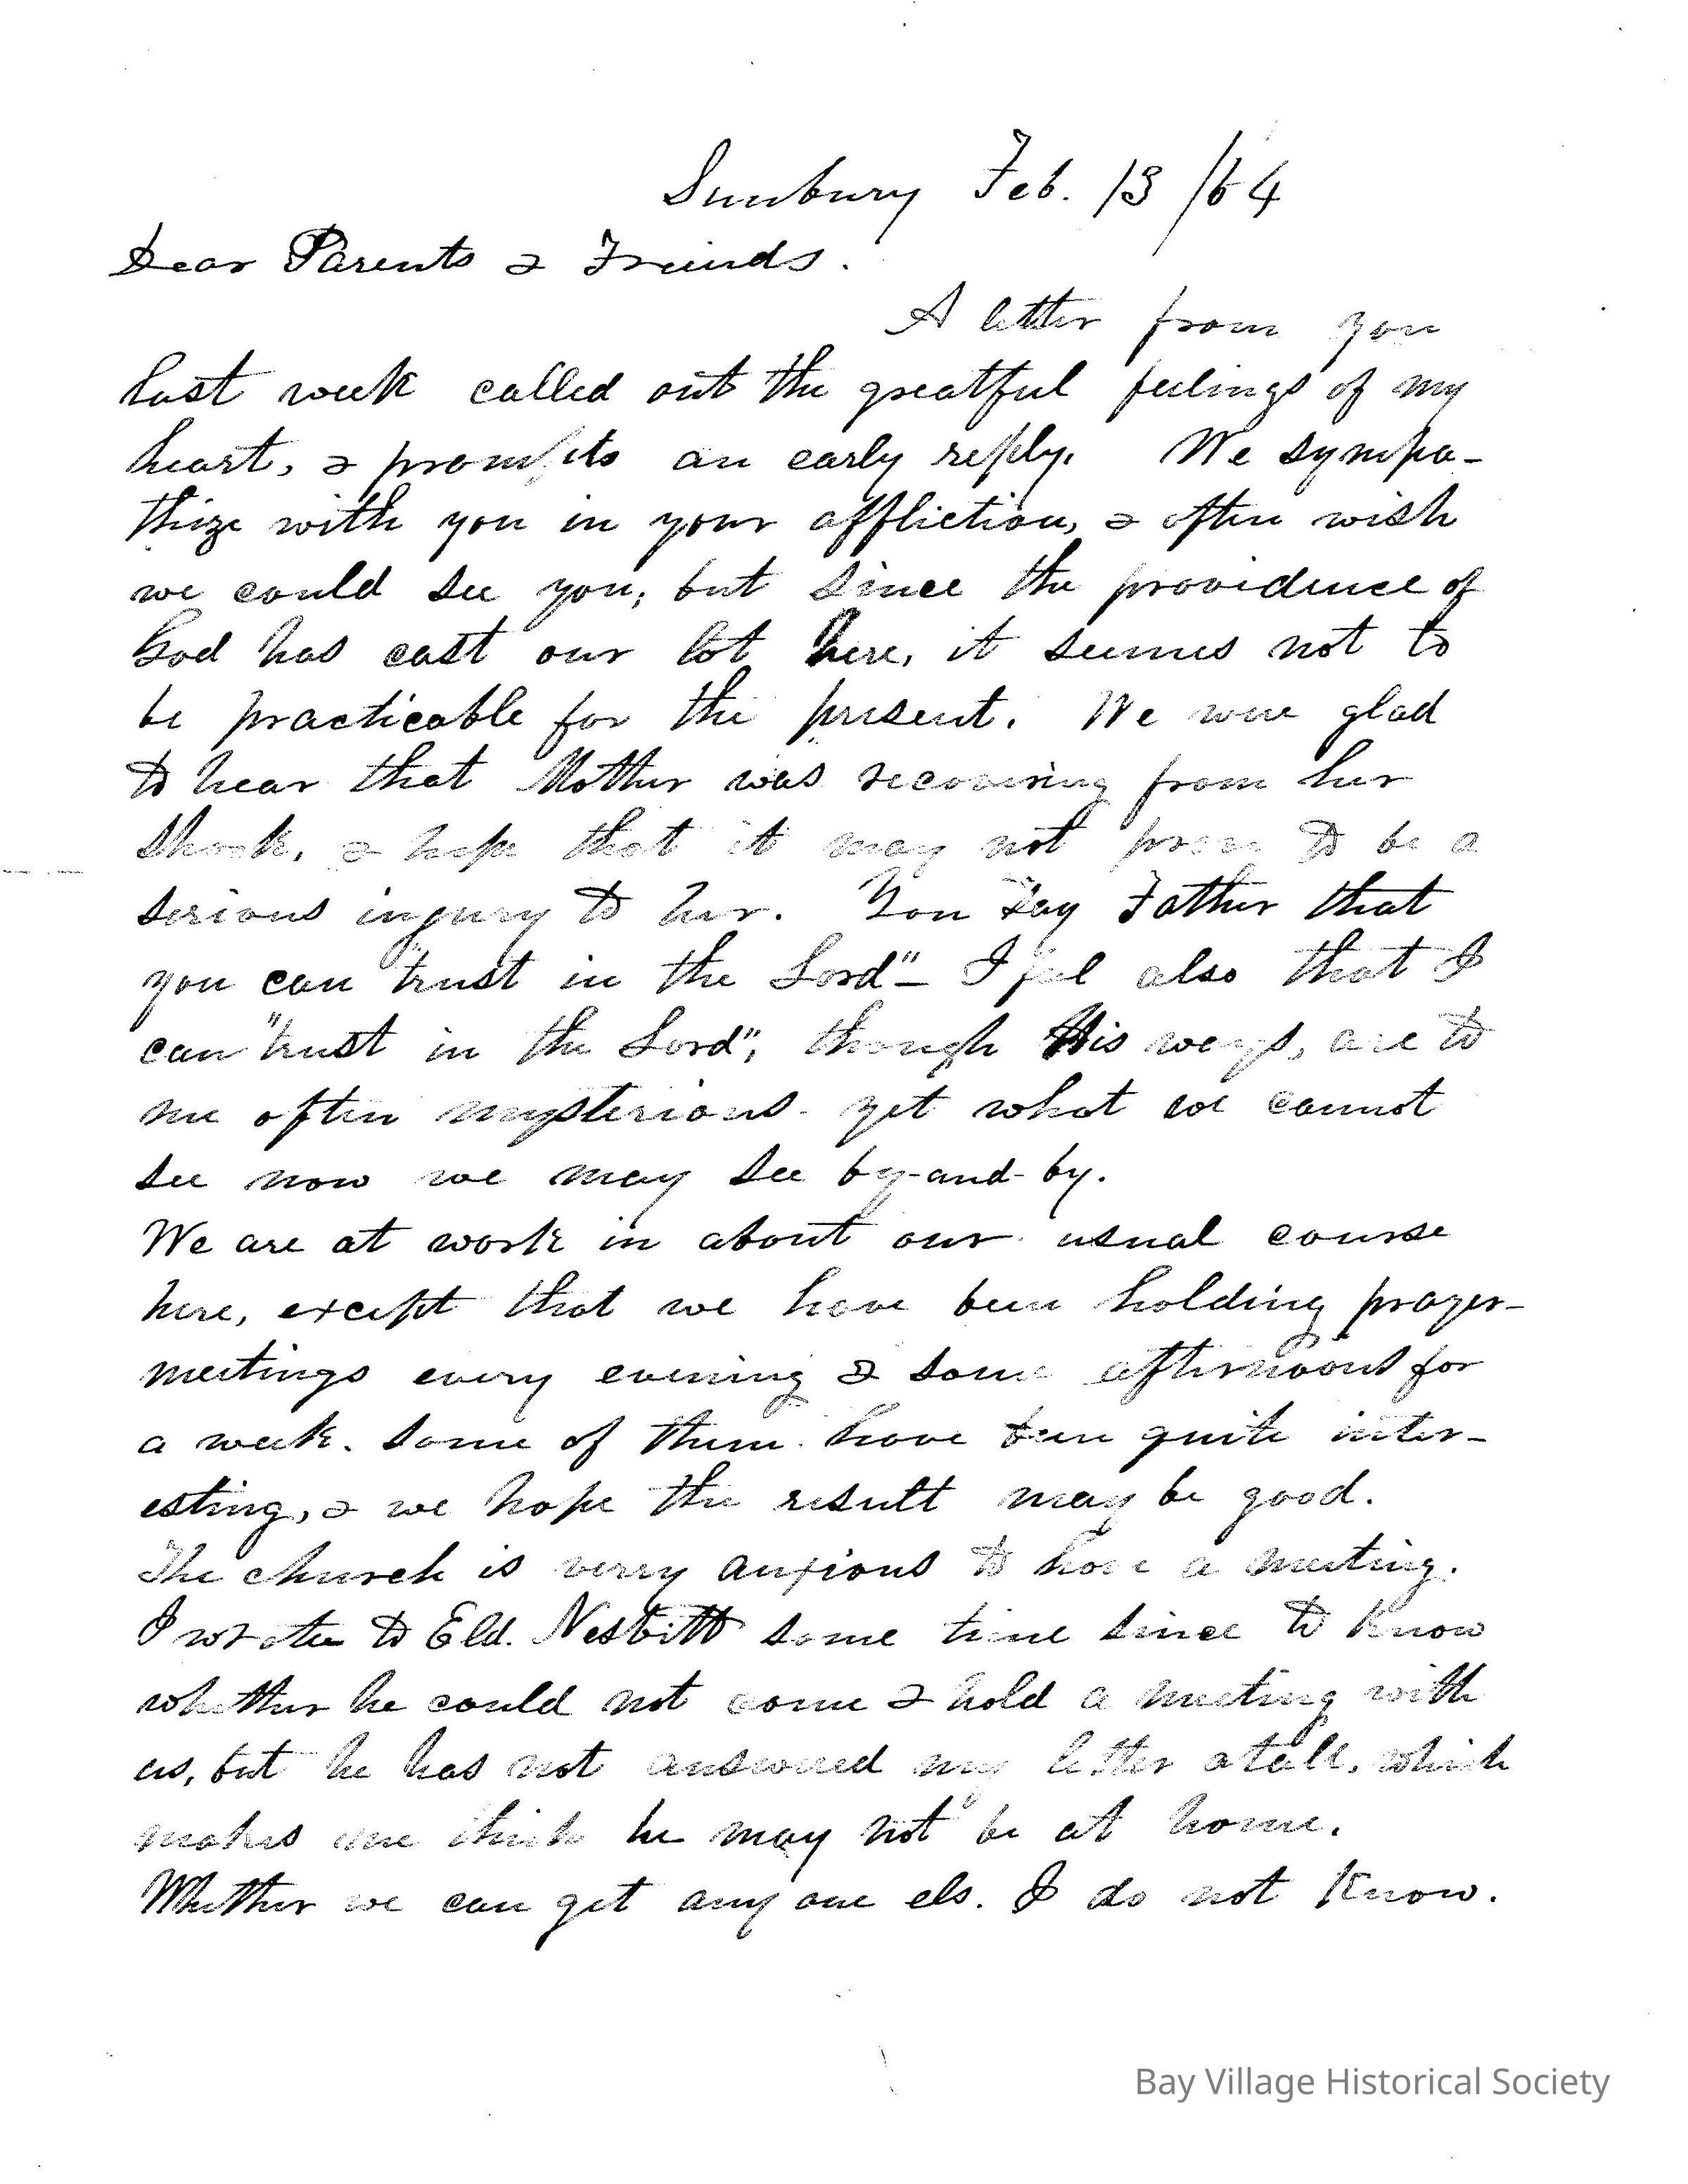 Sunbury Feb. 13 /64
Dear Parents & Friends.
A letter from you
last week called out the greatful feelings of my
heart, & prompts an early reply. We sympa-
thize with you in your affliction, & often wish
we could see you; but since the providence of
God has cast our lot here, it seemes not to
be practicable for the present. We were glad
to hear that Mother was recovering from her
shock, & hope that it may not prove to be a
serious injury to her. You say Father that
you can "trust in the Lord"— I feel also that I
can "trust in the Lord", though His ways, are to
me often mysterious- yet what we cannot
see now we may see by-and-by.
We are at work in about our usual course
here, except that we have been holding prayer-
meetings every evening & some afternoons for
a week. Some of them have been quite inter-
esting, & we hope the result may be good.
The church is verry anxious to have a meeting.
I wrote to Eld. Nesbitt some time since to know
whether he could not come & hold a meeting with
us, but he has not answered my letter atall, which
makes me think he may not be at home.
Whether we can get any one els. I do not know.
Bay Village Historical Society